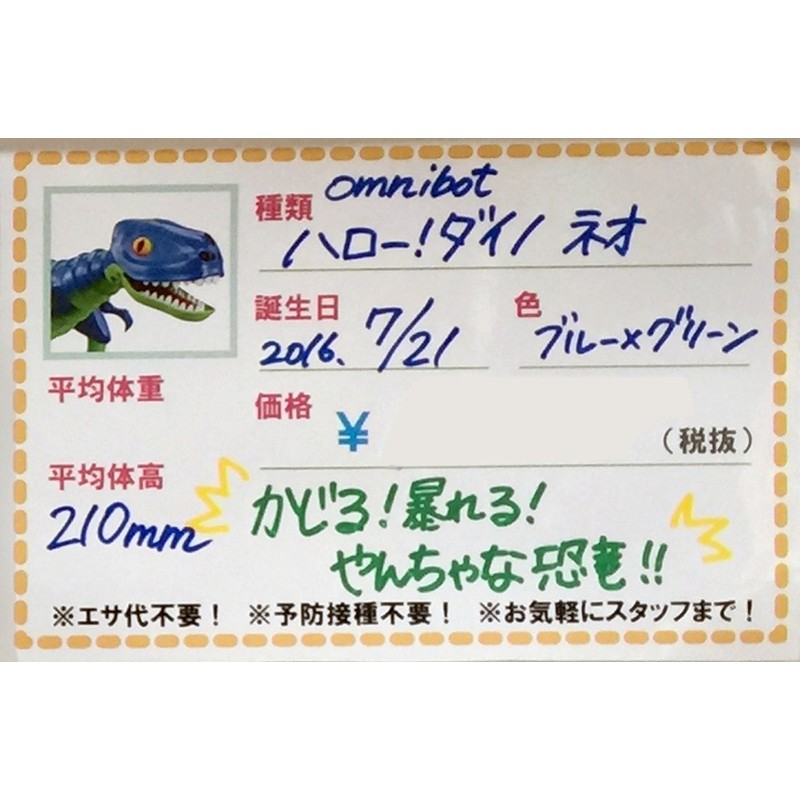 omnibot
種類
ハロー!ダイノ ネオ
誕生日
2016. 7/21
色
ブルー×グリーン
平均体重
価格
¥
(税抜)
平均体高
210mm
かじる!暴れる!
やんちゃな恐竜!!
※エサ代不要! ※予防接種不要! ※お気軽にスタッフまで!